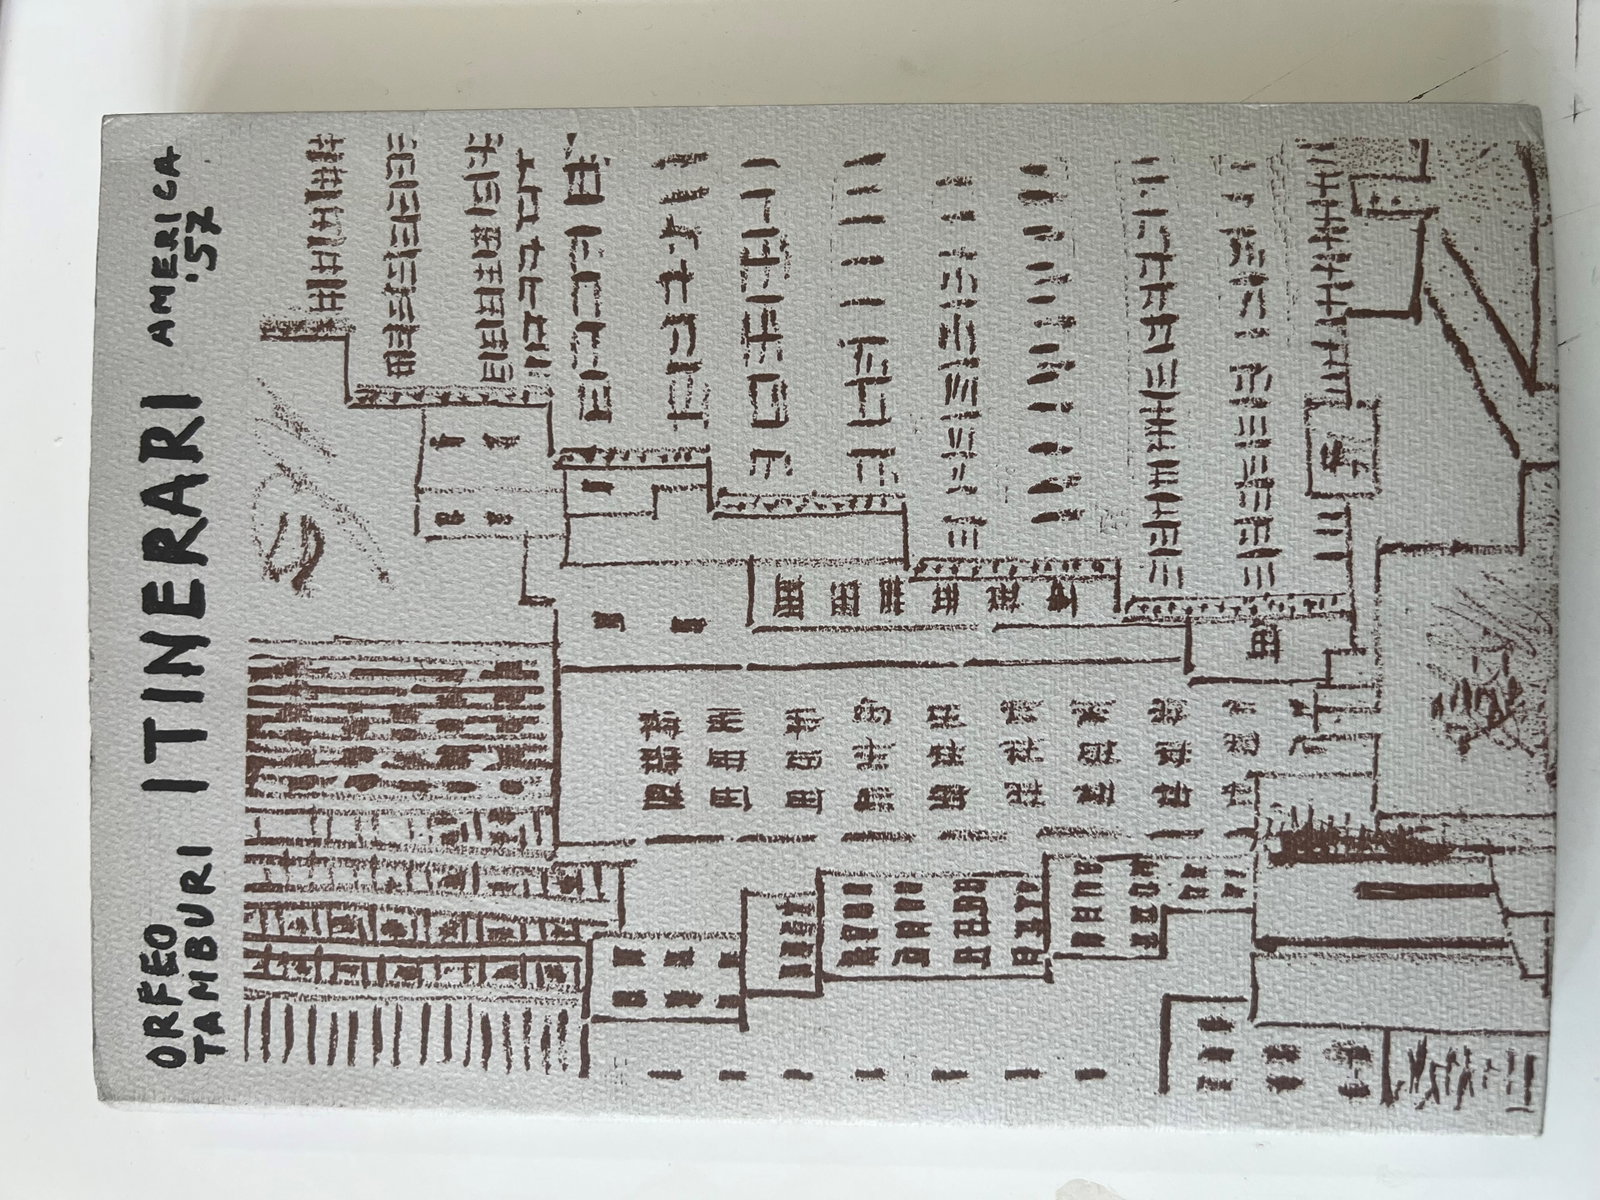 ORFEO
TAMBURI
ITINERARI
AMERICA
'57